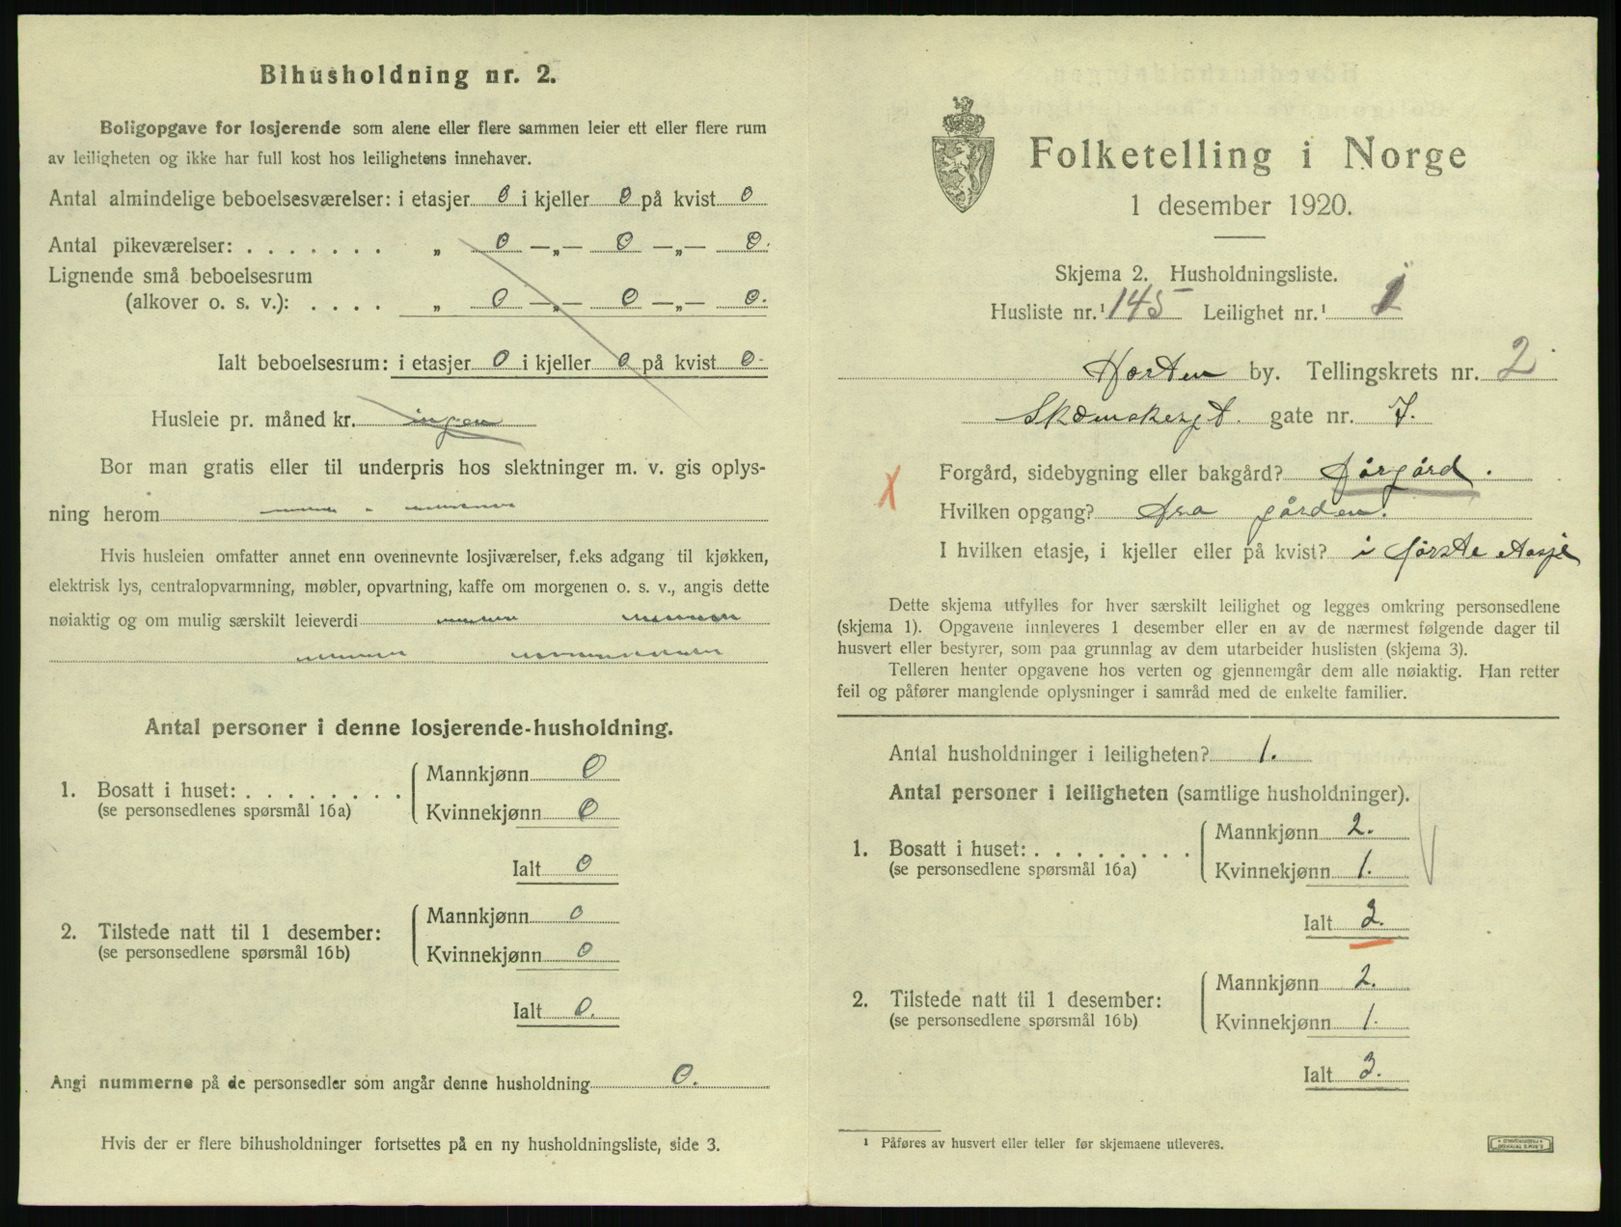 Bihusholdning nr. 2.
Boligopgave for losjerende som alene eller flere sammen leier ett eller flere rum
av leiligheten og ikke har full kost hos leilighetens innehaver.
Antal almindelige beboelsesværelser: i etasjer 0 i kjeller 0 på kvist 0
Antal pikeværelser: . . . . . . . „ 0 —„— 0 —„— 0.
Lignende små beboelsesrum
(alkover o. s. v.): . . . . „ 0 —„— 0 —„— 0.
Ialt beboelsesrum: i etasjer 0 i kjeller 0 på kvist 0
Husleie pr. måned kr. ingen
Bor man gratis eller til underpris hos slektninger m. v. gis oplys-
ning herom
Hvis husleien omfatter annet enn ovennevnte losjiværelser, f.eks adgang til kjøkken,
elektrisk lys, centralopvarmning, møbler, opvartning, kaffe om morgenen o. s. v., angis dette
nøiaktig og om mulig særskilt leieverdi
Antal personer i denne losjerende-husholdning.
1. Bosatt i huset: . . . . . . . . Mannkjønn 0
(se personsedlenes spørsmål 16a) Kvinnekjønn 0
Ialt 0
2. Tilstede natt til 1 desember: Mannkjønn 0
(se personsedlene spørsmål 16b) Kvinnekjønn 0
Ialt 0.
Angi nummerne på de personsedler som angår denne husholdning 0.
Hvis der er flere bihusholdninger fortsettes på en ny husholdningsliste, side 3.
Folketelling i Norge
1 desember 1920.
Skjema 2. Husholdningsliste.
Husliste nr.¹ 145 Leilighet nr.¹ 1
Horten by. Tellingskrets nr. 2
gate nr. 7.
Forgård, sidebygning eller bakgård? Forgård.
Hvilken opgang? fra gården.
I hvilken etasje, i kjeller eller på kvist? i første etasje
Dette skjema utfylles for hver særskilt leilighet og legges omkring personsedlene
(skjema 1). Opgavene innleveres 1 desember eller en av de nærmest følgende dager til
husvert eller bestyrer, som paa grunnlag av dem utarbeider huslisten (skjema 3).
Telleren henter opgavene hos verten og gjennemgår dem alle nøiaktig. Han retter
feil og påfører manglende oplysninger i samråd med de enkelte familier.
Antal husholdninger i leiligheten? 1.
Antal personer i leiligheten (samtlige husholdninger).
1. Bosatt i huset: . . . . . . . . Mannkjønn 2.
(se personsedlene spørsmål 16a) Kvinnekjønn 1.
Ialt 3.
2. Tilstede natt til 1 desember: Mannkjønn 2.
(se personsedlene spørsmål 16b) Kvinnekjønn 1.
Ialt 3.
¹ Påføres av husvert eller teller før skjemaene utleveres.